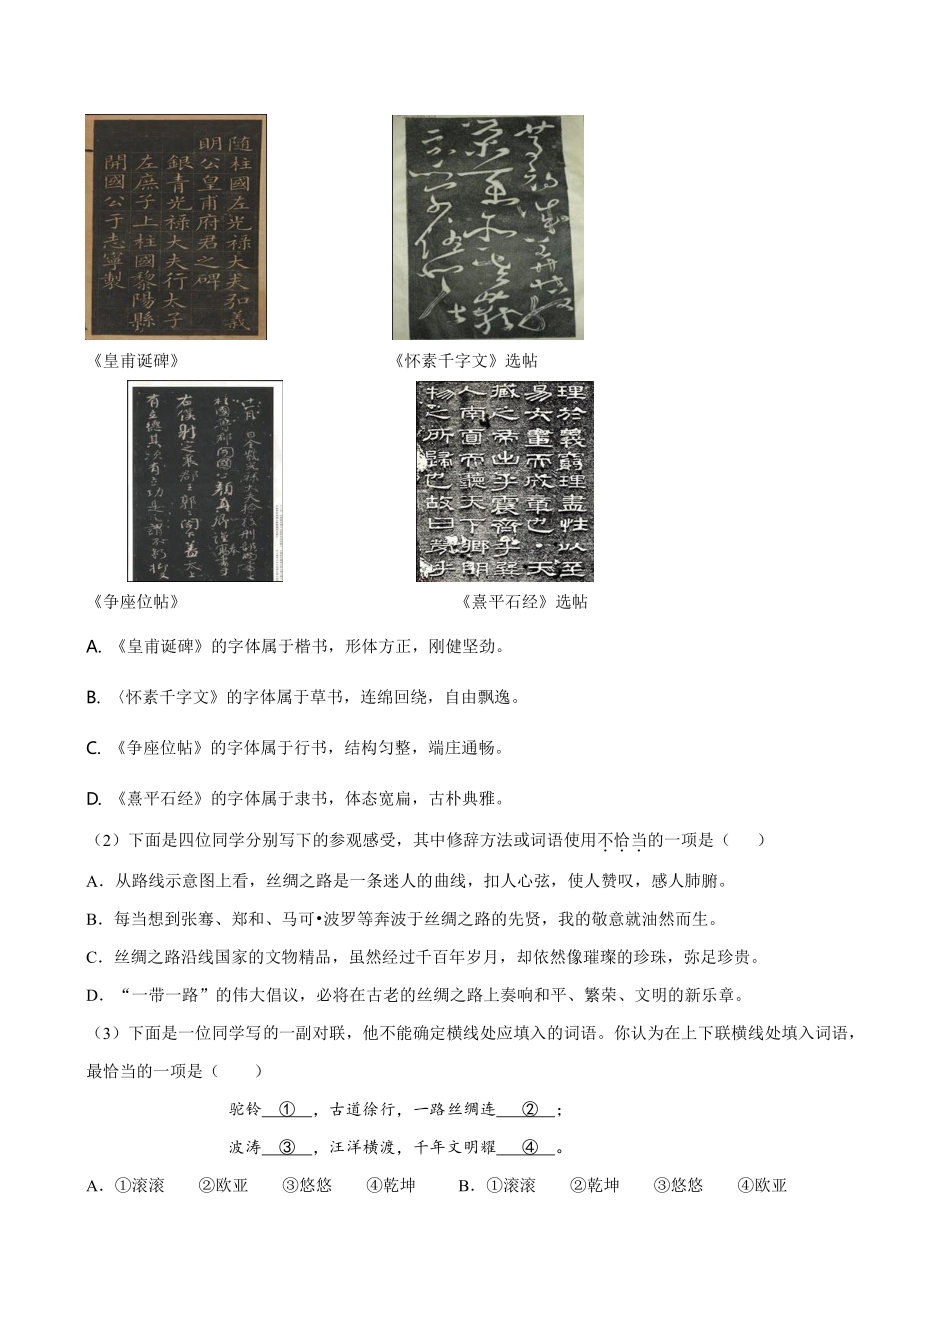 随柱國左光禄大夫弘義
明公皇甫府君之碑
銀青光禄大夫行太子
左庶子上柱國黎陽縣
開國公于志寧製
《皇甫诞碑》
《怀素千字文》选帖
右僕射之
有立德其次有立功是之謂不朽
理於義窮理盡性以至
易六畫而成章也·天
人南面而聽天下鄉明
物之所歸也故曰
《争座位帖》
《熹平石经》选帖
A. 《皇甫诞碑》的字体属于楷书，形体方正，刚健坚劲。
B. 〈怀素千字文》的字体属于草书，连绵回绕，自由飘逸。
C. 《争座位帖》的字体属于行书，结构匀整，端庄通畅。
D. 《熹平石经》的字体属于隶书，体态宽扁，古朴典雅。
（2）下面是四位同学分别写下的参观感受，其中修辞方法或词语使用不恰当的一项是（ ）
A．从路线示意图上看，丝绸之路是一条迷人的曲线，扣人心弦，使人赞叹，感人肺腑。
B．每当想到张骞、郑和、马可•波罗等奔波于丝绸之路的先贤，我的敬意就油然而生。
C．丝绸之路沿线国家的文物精品，虽然经过千百年岁月，却依然像璀璨的珍珠，弥足珍贵。
D．“一带一路”的伟大倡议，必将在古老的丝绸之路上奏响和平、繁荣、文明的新乐章。
（3）下面是一位同学写的一副对联，他不能确定横线处应填入的词语。你认为在上下联横线处填入词语，
最恰当的一项是（ ）
驼铃 ① ，古道徐行，一路丝绸连 ② ；
波涛 ③ ，汪洋横渡，千年文明耀 ④ 。
A．①滚滚 ②欧亚 ③悠悠 ④乾坤 B．①滚滚 ②乾坤 ③悠悠 ④欧亚